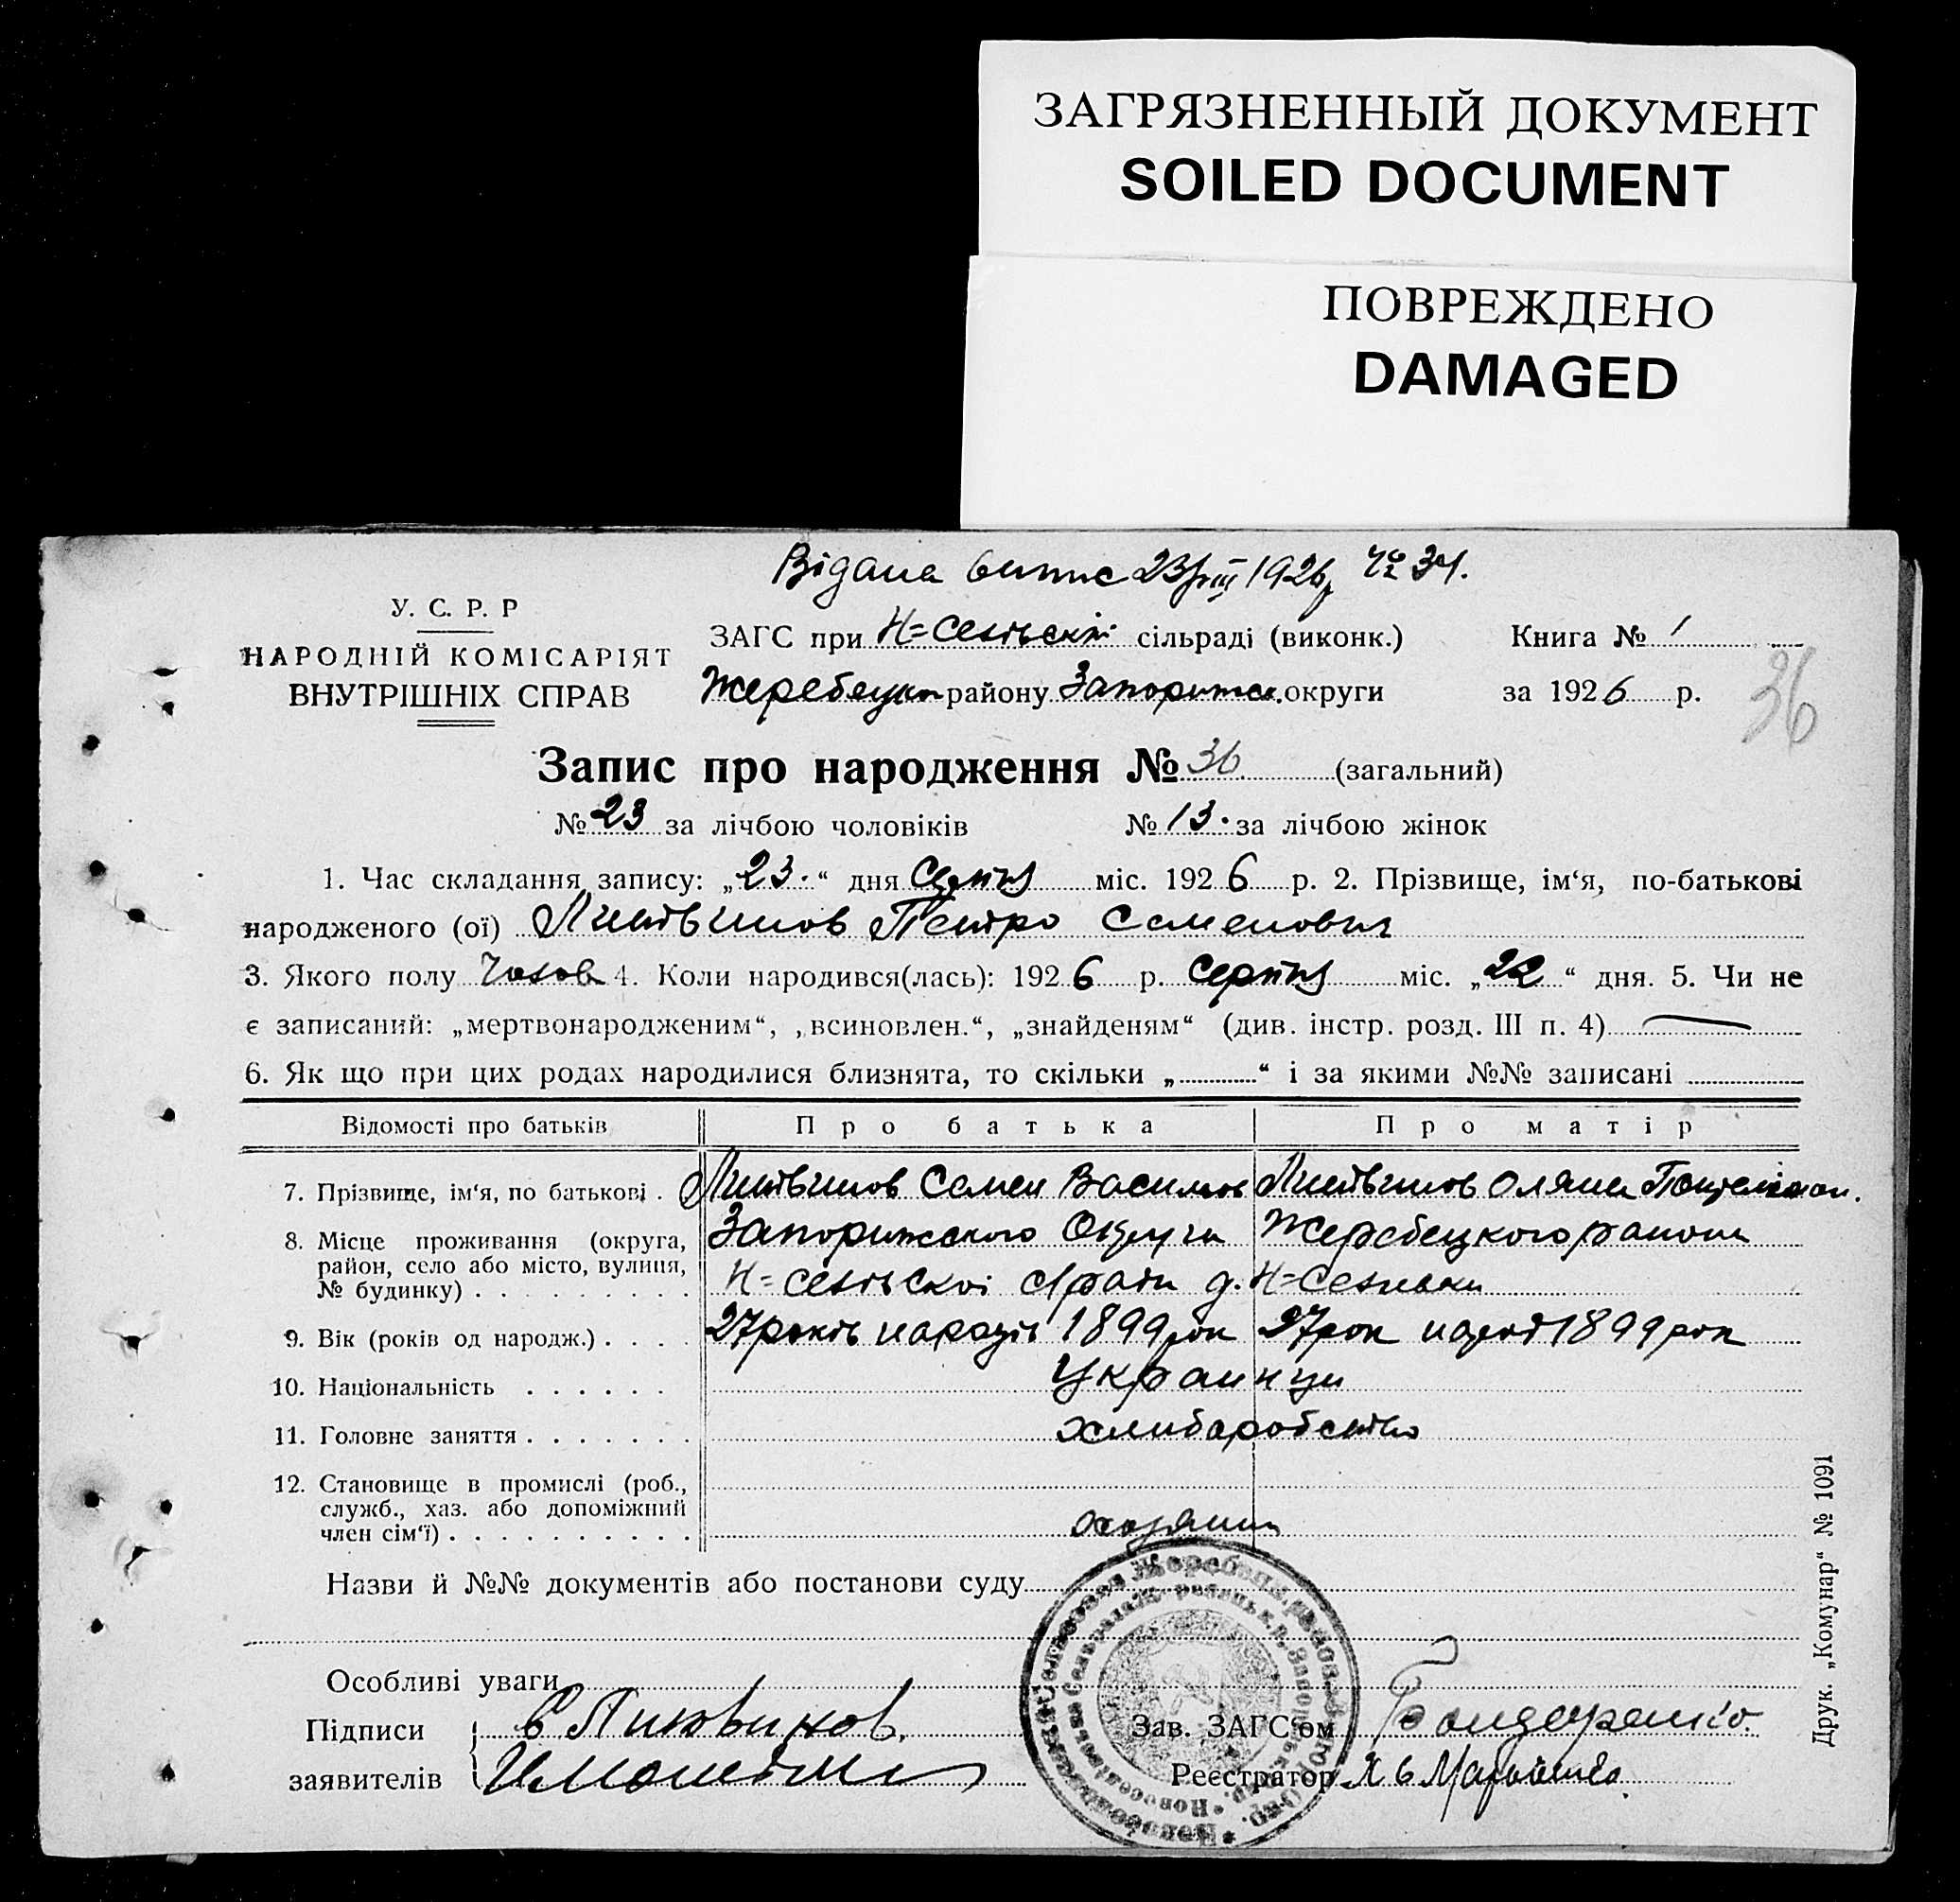 ЗАГРЯЗНЕННЫЙ ДОКУМЕНТ
SOILED DOCUMENT
ПОВРЕЖДЕНО
DAMAGED
Відана випис 23/VIII 1926р № 34.
У. С. Р. Р
НАРОДНІЙ КОМІСАРІЯТ
ВНУТРІШНІХ СПРАВ
ЗАГС при Н=Селівскій сільраді (виконк.) Книга № 1
Жеребецького району Запорижск. округи за 1926 р.
36
Запис про народження № 36 (загальний)
№ 23 за лічбою чоловіків № 13. за лічбою жінок
1. Час складання запису: „23.“ дня Серпня міс. 1926 р. 2. Прізвище, ім‘я, по-батькові
народженого (ої) Литвинов Петро Семенович
3. Якого полу Чолов 4. Коли народився(лась): 1926 р. Серпня міс. „22“ дня. 5. Чи не
є записаний: „мертвонародженим“, „всиновлен.“, „знайденям“ (див. інстр. розд. III п. 4)
6. Як що при цих родах народилися близнята, то скільки „ “ і за якими №№ записані
Відомості про батьків Про батька Про матір
7. Прізвище, ім‘я, по батькові . Литвинов Семен Василов Литвинов Оляна
8. Місце проживання (округа, Запорижского Округи Жеребецкого району
район, село або місто, вулиця, Н=Селівскоі с/ради д. Н=Селивки
№ будинку)
9. Вік (років од народж.) 27 років народів 1899 рок 27 рок народ 1899 рок
10. Національність Украинци
11. Головне заняття хлибаробство
12. Становище в промислі (роб.,
служб., хаз. або допоміжний
член сім‘ї) хозяин
Назви й №№ документів або постанови суду
Особливі уваги
Підписи С. Литвинов. Зав. ЗАГС‘ом Бондаренко.
заявителів Реєстратор
Друк. „Комунар“ № 1091